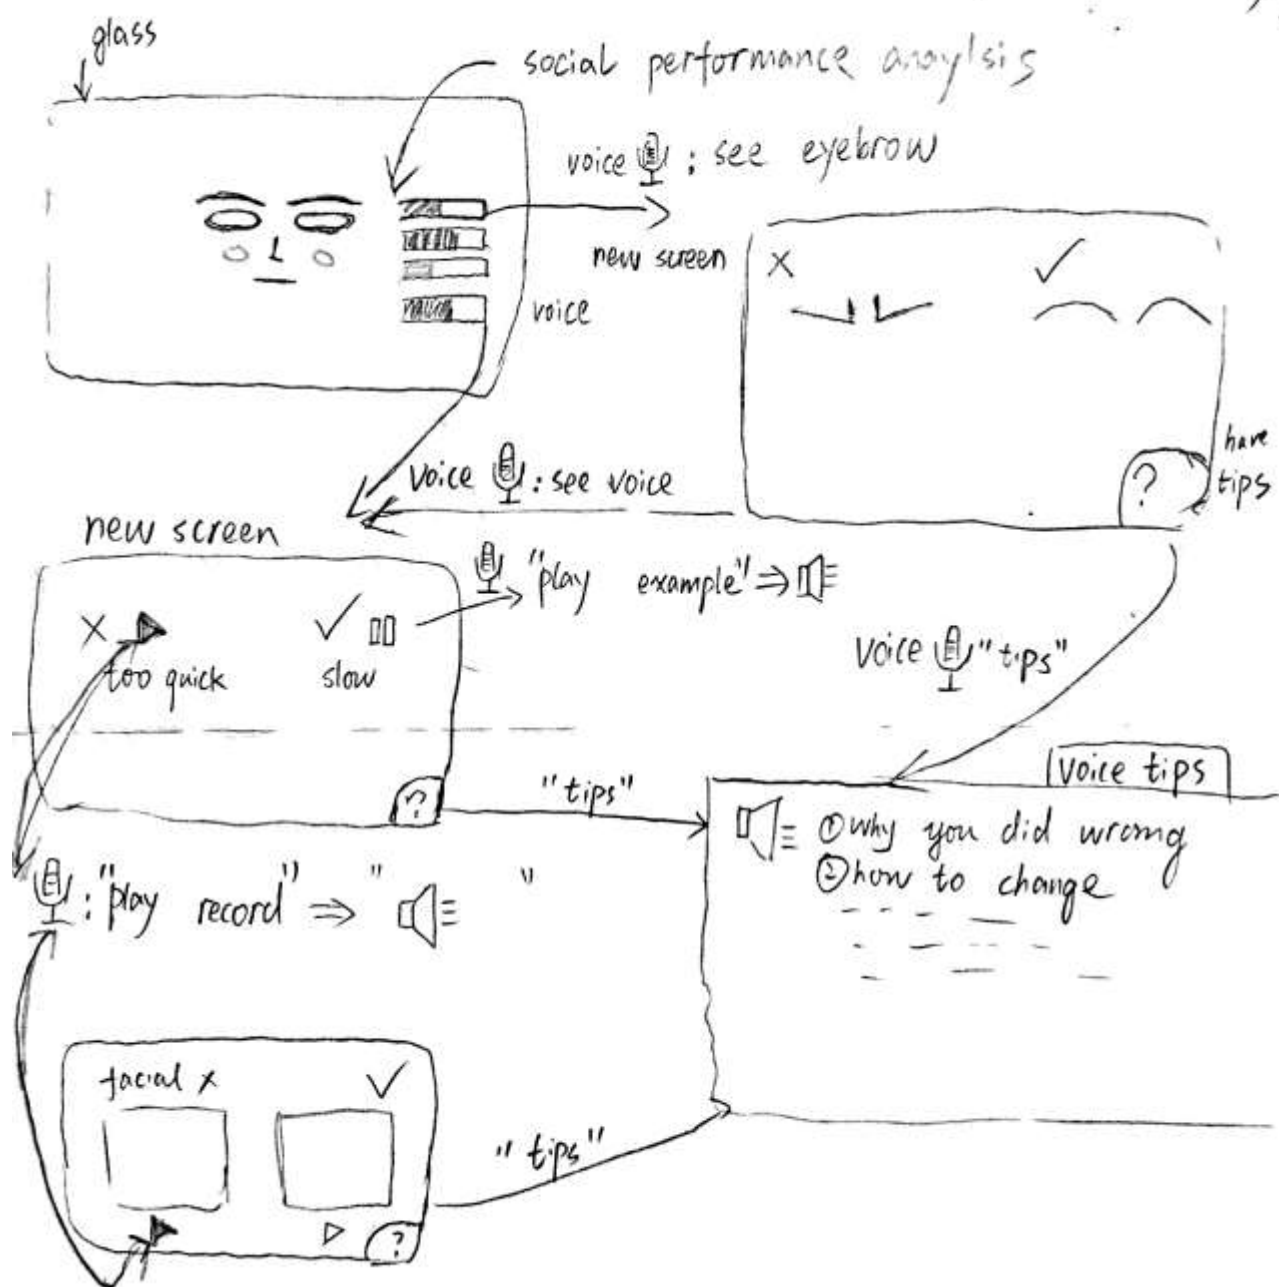 glass
social performance anaylsis
voice : see eyebrow
new screen
voice
have
tips
voice : see voice
new screen
"play example" ⇒
too quick
slow
?
?
voice "tips"
"tips"
voice tips
① why you did wrong
② how to change
: "play record" ⇒ " "
facial x
"tips"
?